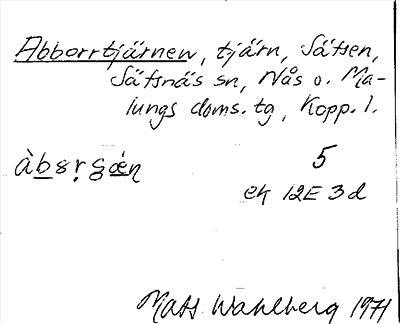 Abborrtjärnen, tjärn, Sätsen,
Säfsnäs sn, Nås o. Ma-
lungs doms. tg, Kopp. l.
5
ek 12E 3d
Mats Wahlberg 1971